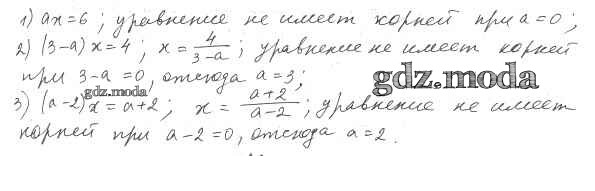 1) ax=6; уравнение не имеет корней при a=0;
2) (3-a)x=4; x=4/(3-a); уравнение не имеет корней
при 3-a=0, отсюда a=3;
gdz.moda
gdz.moda
3) (a-2)x=a+2; x=(a+2)/(a-2); уравнение не имеет
корней при a-2=0, отсюда a=2.